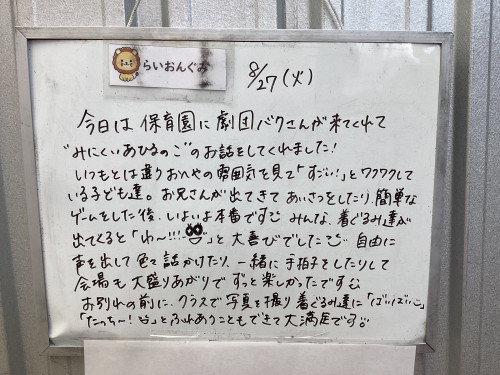 らいおんぐみ
8/27(火)
今日は保育園に劇団バクさんが来てくれて
"みにくいあひるのこ"のお話をしてくれました!
いつもとは違うおへやの雰囲気を見て「すごい!」とワクワクして
いる子ども達。お兄さんが出てきてあいさつをしたり、簡単な
ゲームをした後、いよいよ本番です みんな、着ぐるみ達が
出てくると「わ〜!!!」と大喜びでした 自由に
声を出して色々話かけたり、一緒に手拍子をしたりして
会場も大盛りあがりでずっと楽しかったです
お別れの前に、クラスで写真を撮り着ぐるみ達に「ばいばい」
「たっち〜!」とふれあうこともできて大満足です